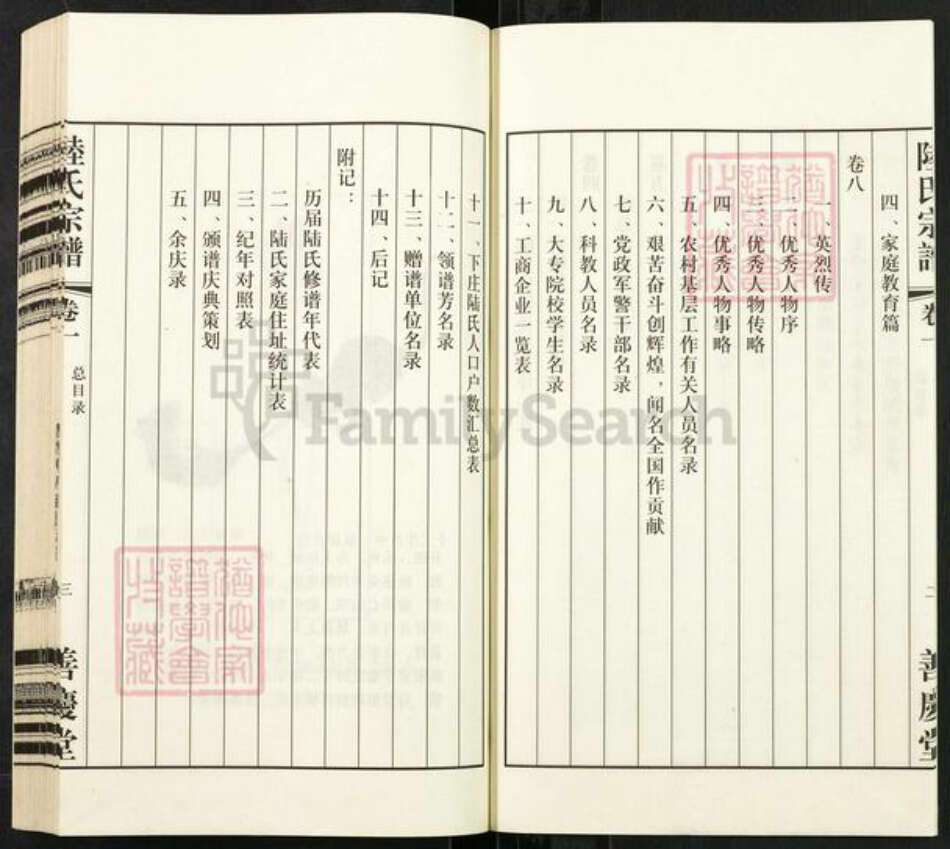 陸氏宗譜
卷一
二
善慶堂
四、家庭教育篇
卷八
一、英烈传
二、优秀人物序
三、优秀人物传略
四、优秀人物事略
五、农村基层工作有关人员名录
六、艰苦奋斗创辉煌，闻名全国作贡献
七、党政军警干部名录
八、科教人员名录
九、大专院校学生名录
十、工商企业一览表
十一、下庄陆氏人口户数汇总表
十二、领谱芳名录
十三、赠谱单位名录
十四、后记
附记：
历届陆氏修谱年代表
二、陆氏家庭住址统计表
三、纪年对照表
四、颁谱庆典策划
五、余庆录
陸氏宗譜
卷一
总目录
三
善慶堂
FamilySearch